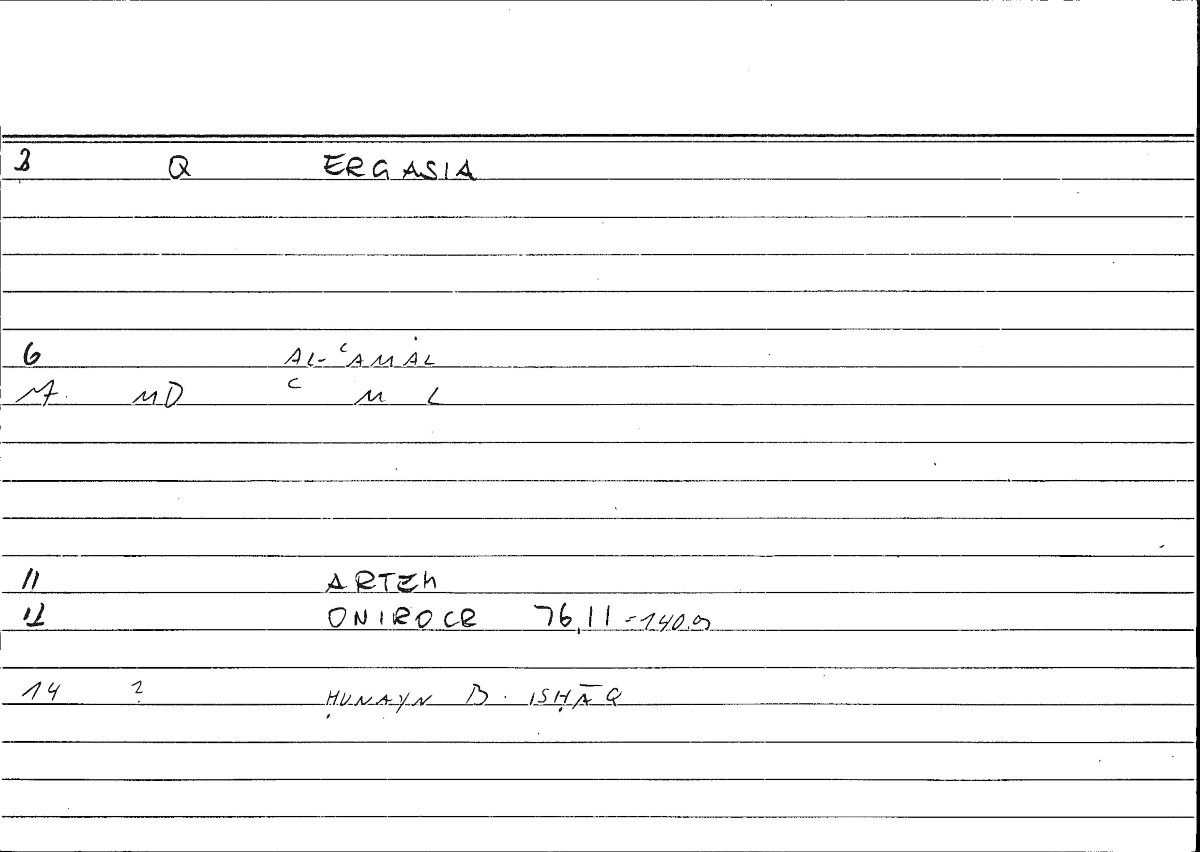 3 Q ERGASIA
6 AL-ʿAMAL
7. MD ʿ M L
11 ARTEM
12 ONIROCR 76,11 = 140.9
14 ? ḤUNAYN B. ISḤĀQ